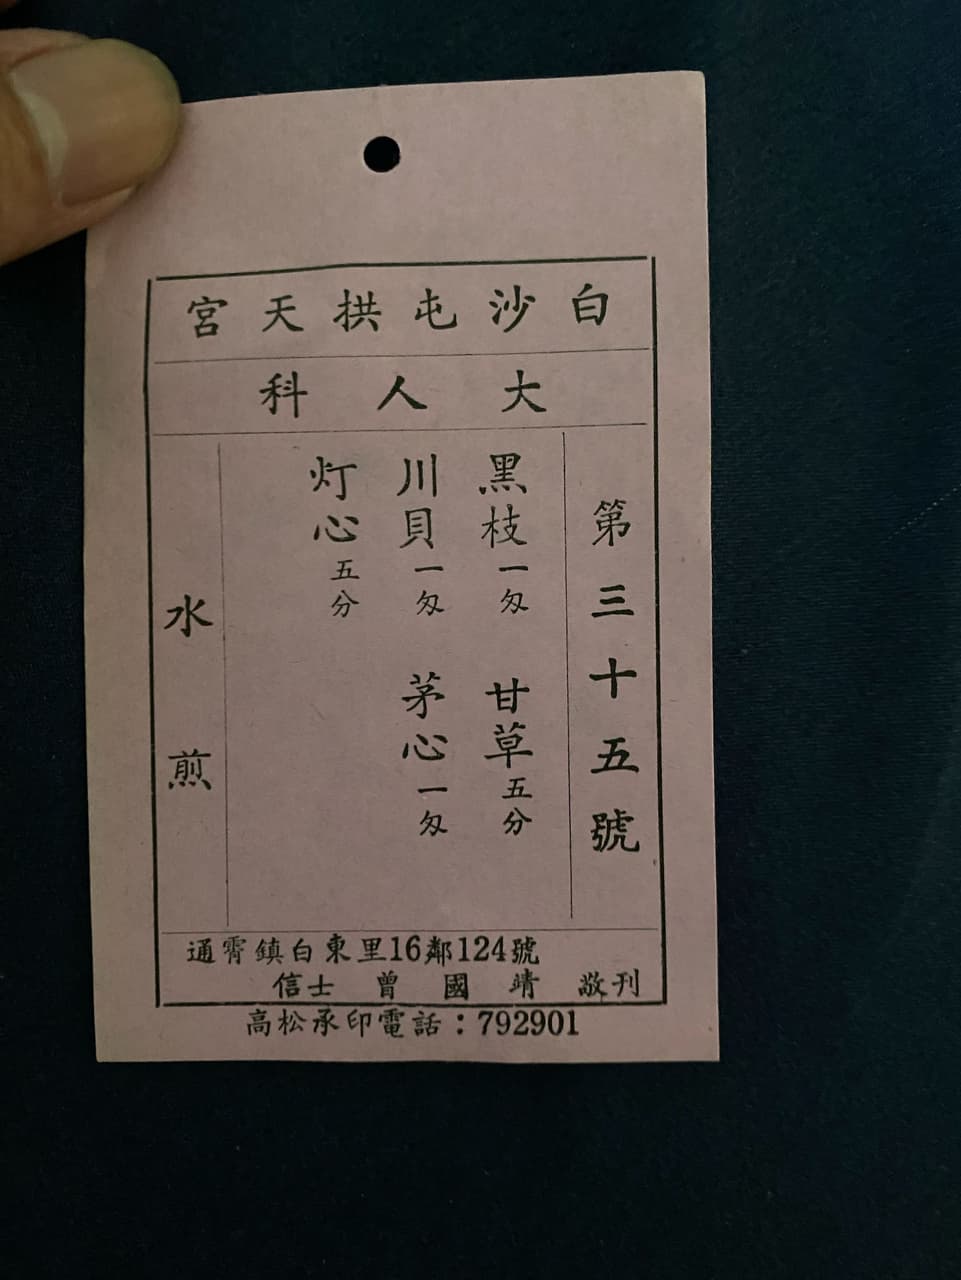 白沙屯拱天宮
大人科
第三十五號
黑枝一匁 甘草五分
川貝一匁 茅心一匁
灯心五分
水煎
通霄鎮白東里16鄰124號
信士 曾國靖 敬刊
高松承印電話：792901